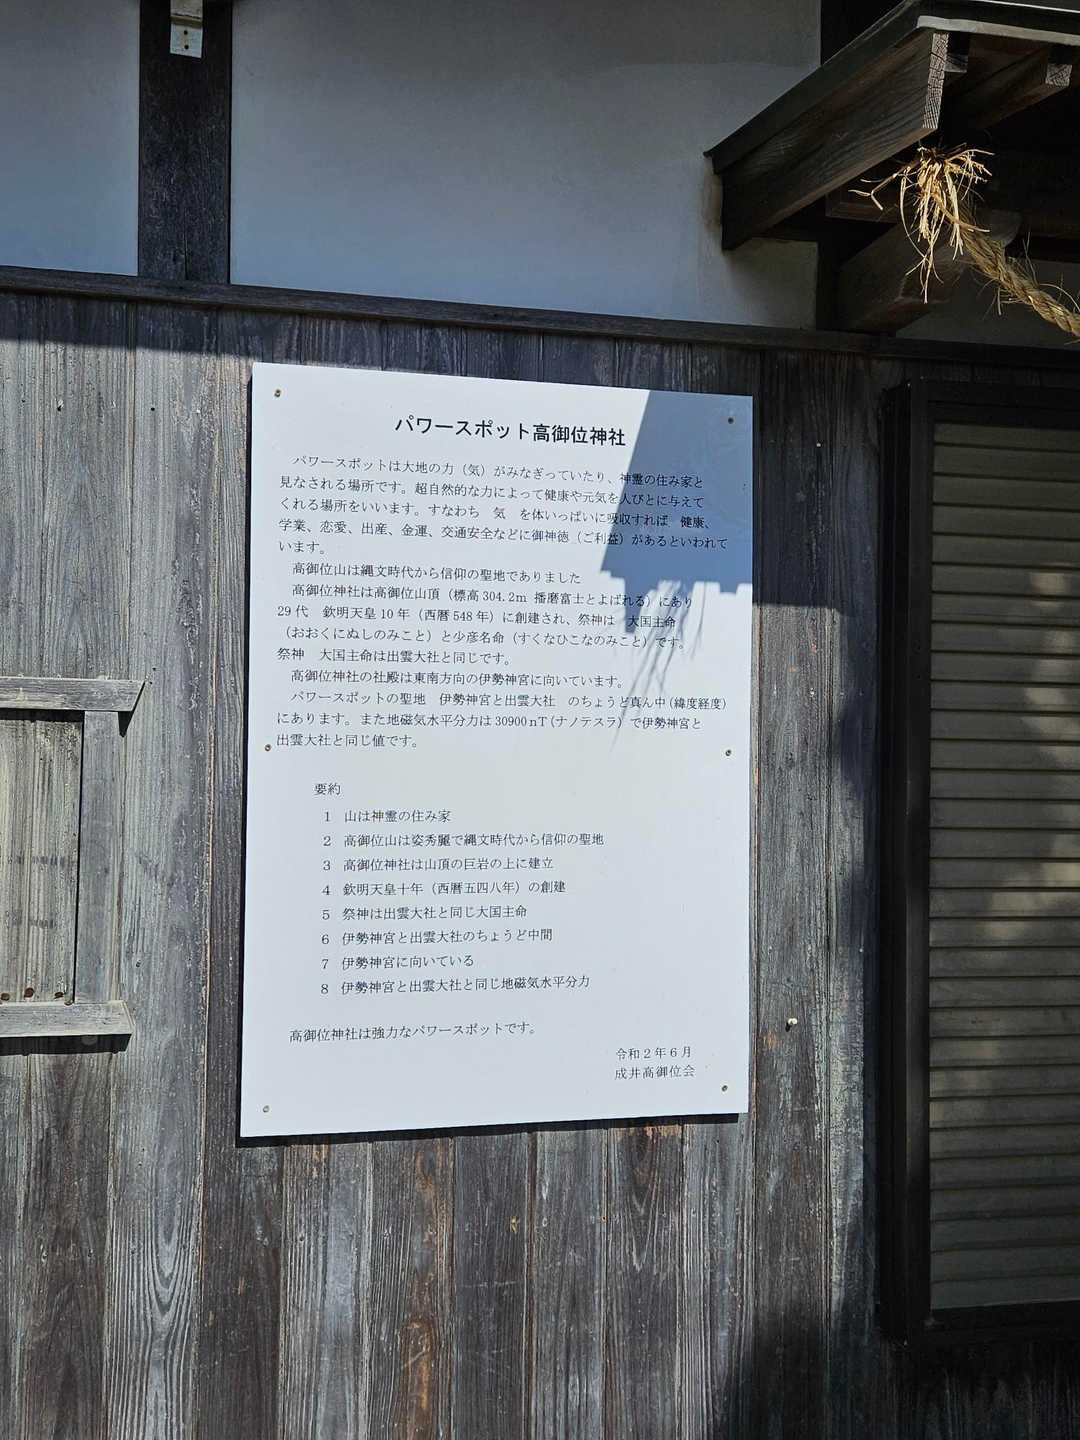 パワースポット高御位神社
パワースポットは大地の力（気）がみなぎっていたり、神霊の住み家と
見なされる場所です。超自然的な力によって健康や元気を人びとに与えて
くれる場所をいいます。すなわち　気　を体いっぱいに吸収すれば　健康、
学業、恋愛、出産、金運、交通安全などに御神徳（ご利益）があるといわれて
います。
高御位山は縄文時代から信仰の聖地でありました
高御位神社は高御位山頂（標高304.2m 播磨富士とよばれる）にあり
29代　欽明天皇10年（西暦548年）に創建され、祭神は　大国主命
（おおくにぬしのみこと）と少彦名命（すくなひこなのみこと）です。
祭神　大国主命は出雲大社と同じです。
高御位神社の社殿は東南方向の伊勢神宮に向いています。
パワースポットの聖地　伊勢神宮と出雲大社　のちょうど真ん中(緯度経度)
にあります。また地磁気水平分力は30900nT(ナノテスラ）で伊勢神宮と
出雲大社と同じ値です。
要約
1　山は神霊の住み家
2　高御位山は姿秀麗で縄文時代から信仰の聖地
3　高御位神社は山頂の巨岩の上に建立
4　欽明天皇十年（西暦五四八年）の創建
5　祭神は出雲大社と同じ大国主命
6　伊勢神宮と出雲大社のちょうど中間
7　伊勢神宮に向いている
8　伊勢神宮と出雲大社と同じ地磁気水平分力
高御位神社は強力なパワースポットです。
令和2年6月
成井高御位会